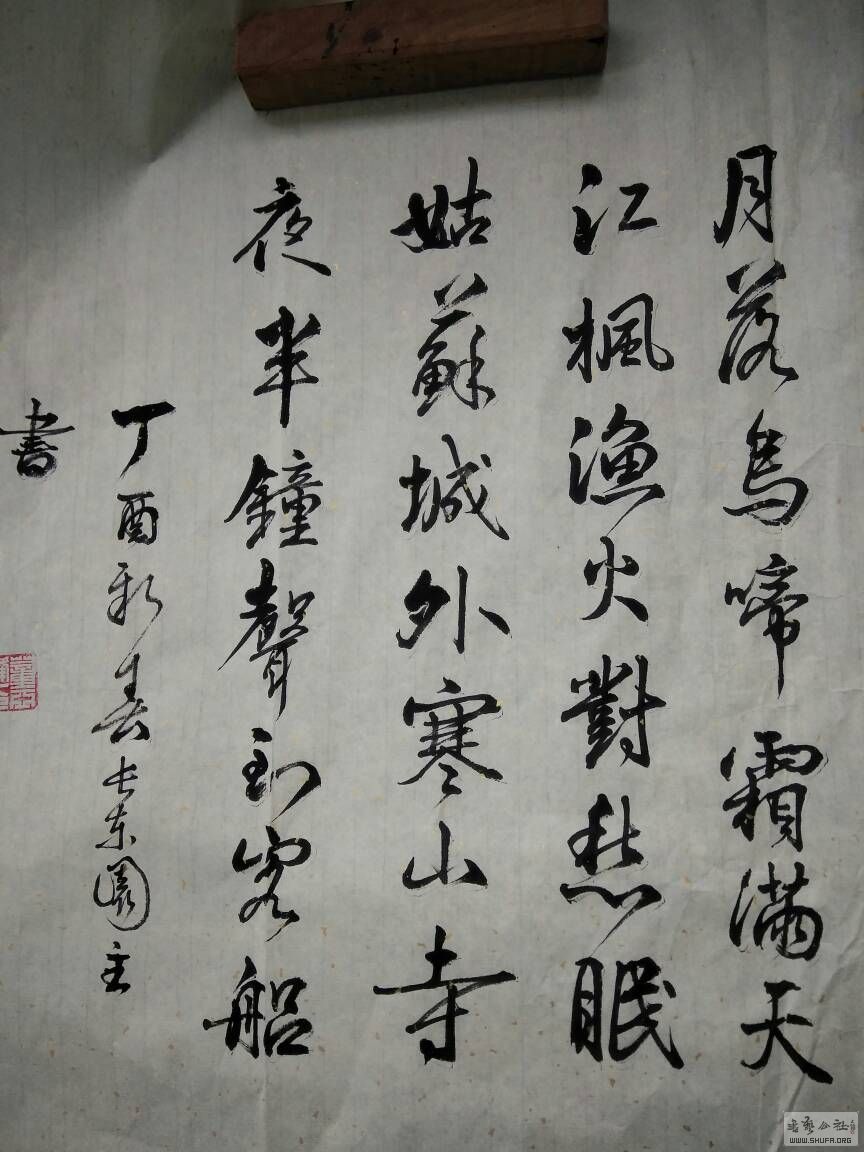 月落烏啼霜滿天
江楓漁火對愁眠
姑蘇城外寒山寺
夜半鐘聲到客船
丁酉新春古東園主
書
书艺公社
WWW.SHUFA.ORG